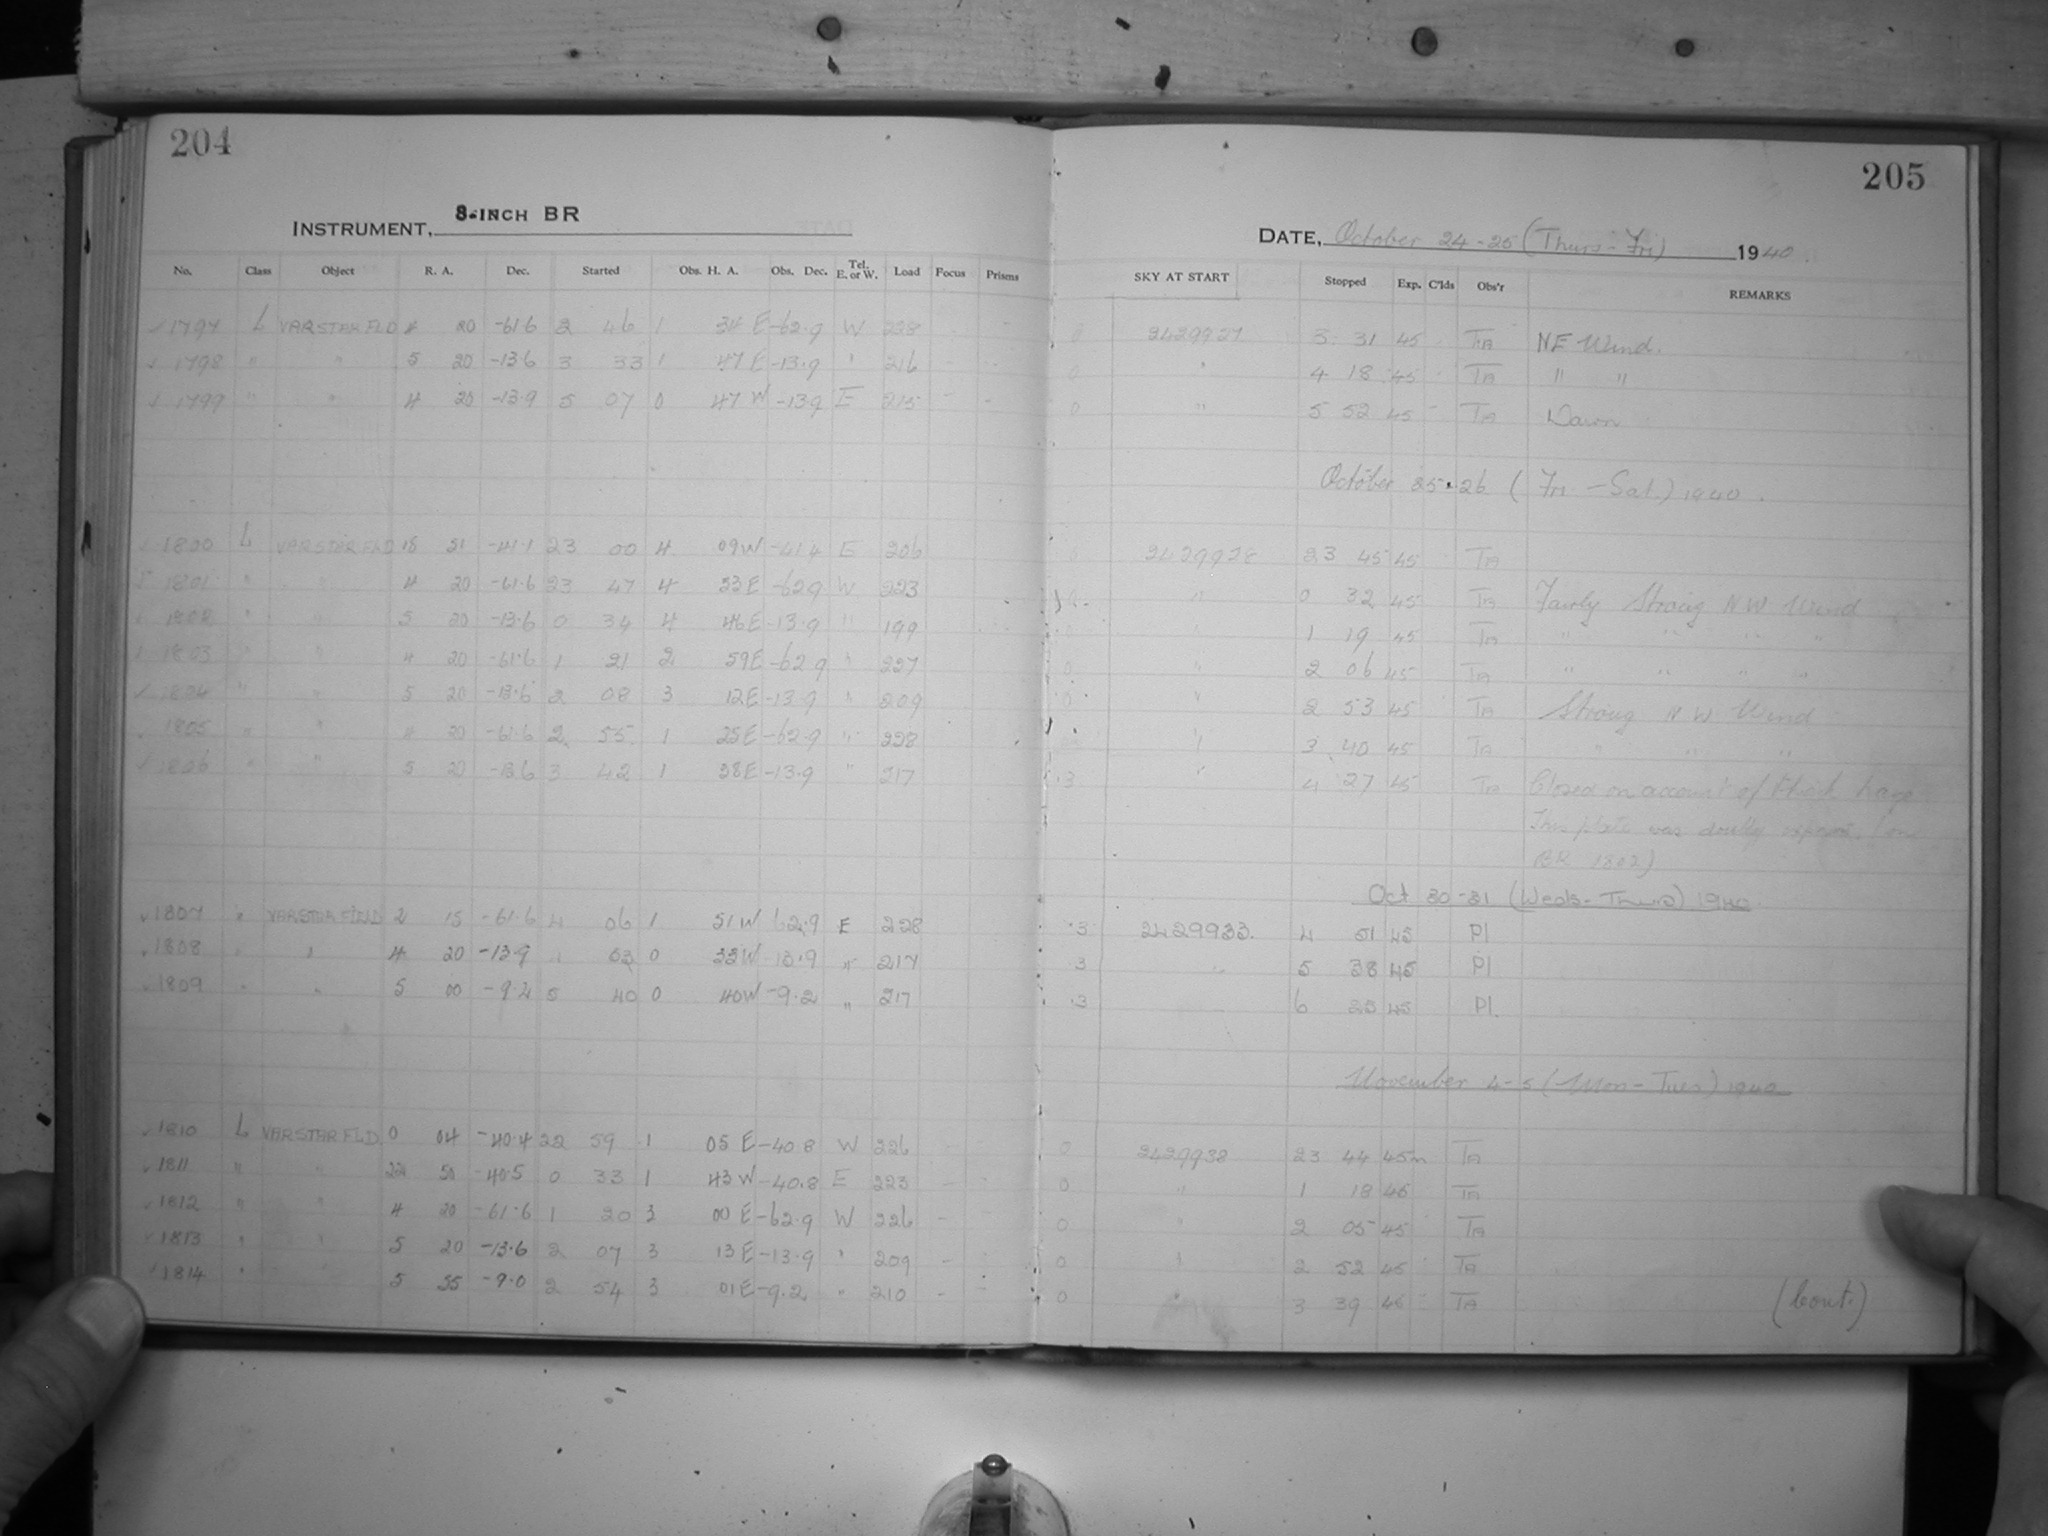 204
8-INCH BR
INSTRUMENT,
No. Class Object R. A. Dec. Started Obs. H. A. Obs. Dec. Tel. E. or W. Load Focus Prisms
1797 L VAR STAR FLD 4 20 -61.6 2 46 1 34 E -62.9 W 228
1798 " " 5 20 -13.6 3 33 1 47 E -13.9 " 216
1799 " " 4 20 -13.9 5 07 0 47 W -13.9 E 215 - -
1800 L VAR STAR FLD 18 51 -41.1 23 00 4 09 W -41.4 E 206
1801 " " 4 20 -61.6 23 47 4 33 E -62.9 W 223
1802 " " 5 20 -13.6 0 34 4 46 E -13.9 " 199
1803 " " 4 20 -61.6 1 21 2 59 E -62.9 " 227
1804 " " 5 20 -13.6 2 08 3 12 E -13.9 " 209
1805 " " 4 20 -61.6 2 55 1 25 E -62.9 " 228
1806 " " 5 20 -13.6 3 42 1 38 E -13.9 " 217
1807 " VAR STAR FIELD 2 15 -61.6 4 06 1 51 W 62.9 E 228
1808 " " 4 20 -13.9 53 0 33 W -13.9 " 217
1809 " " 5 00 -9.2 5 40 0 40 W -9.2 " 217
1810 L VAR STAR FLD. 0 04 -40.4 22 59 1 05 E -40.8 W 226 -
1811 " " 22 50 -40.5 0 33 1 43 W -40.8 E 223 -
1812 " " 4 20 -61.6 1 20 3 00 E -62.9 W 226 -
1813 " " 5 20 -13.6 2 07 3 13 E -13.9 " 209 -
1814 " 5 55 -9.0 2 54 3 01 E -9.2 " 210 - -
205
DATE, October 24-25 (Thurs-Fri) 1940.
SKY AT START Stopped Exp. C'lds Obs'r REMARKS
0 2429927 3 31 45 TA NE Wind.
0 " 4 18 45 TA " "
0 " 5 52 45 - TA Dawn
October 25-26 (Fri.-Sat.) 1940.
0 2429928 23 45 45 TA
" 0 32 45 TA Fairly Strong NW Wind
0 " 1 19 45 TA " " " "
0 " 2 06 45 TA " " " "
0 " 2 53 45 TA Strong N W Wind
" 3 40 45 TA " " "
.3 " 4 27 45 TA Closed on account of thick haze
This plate was doubly (on
BR 1802)
Oct 30-31 (Weds-Thurs) 1940
.3 2429933. 4 51 45 Pl
.3 " 5 38 45 Pl
.3 6 25 45 Pl.
November 4-5 (Mon-Tues) 1940
0 2429938 23 44 45m TA
0 " 1 18 45 TA
0 " 2 05 45 TA
0 " 2 52 45 TA
0 " 3 39 45 TA
(Cont.)